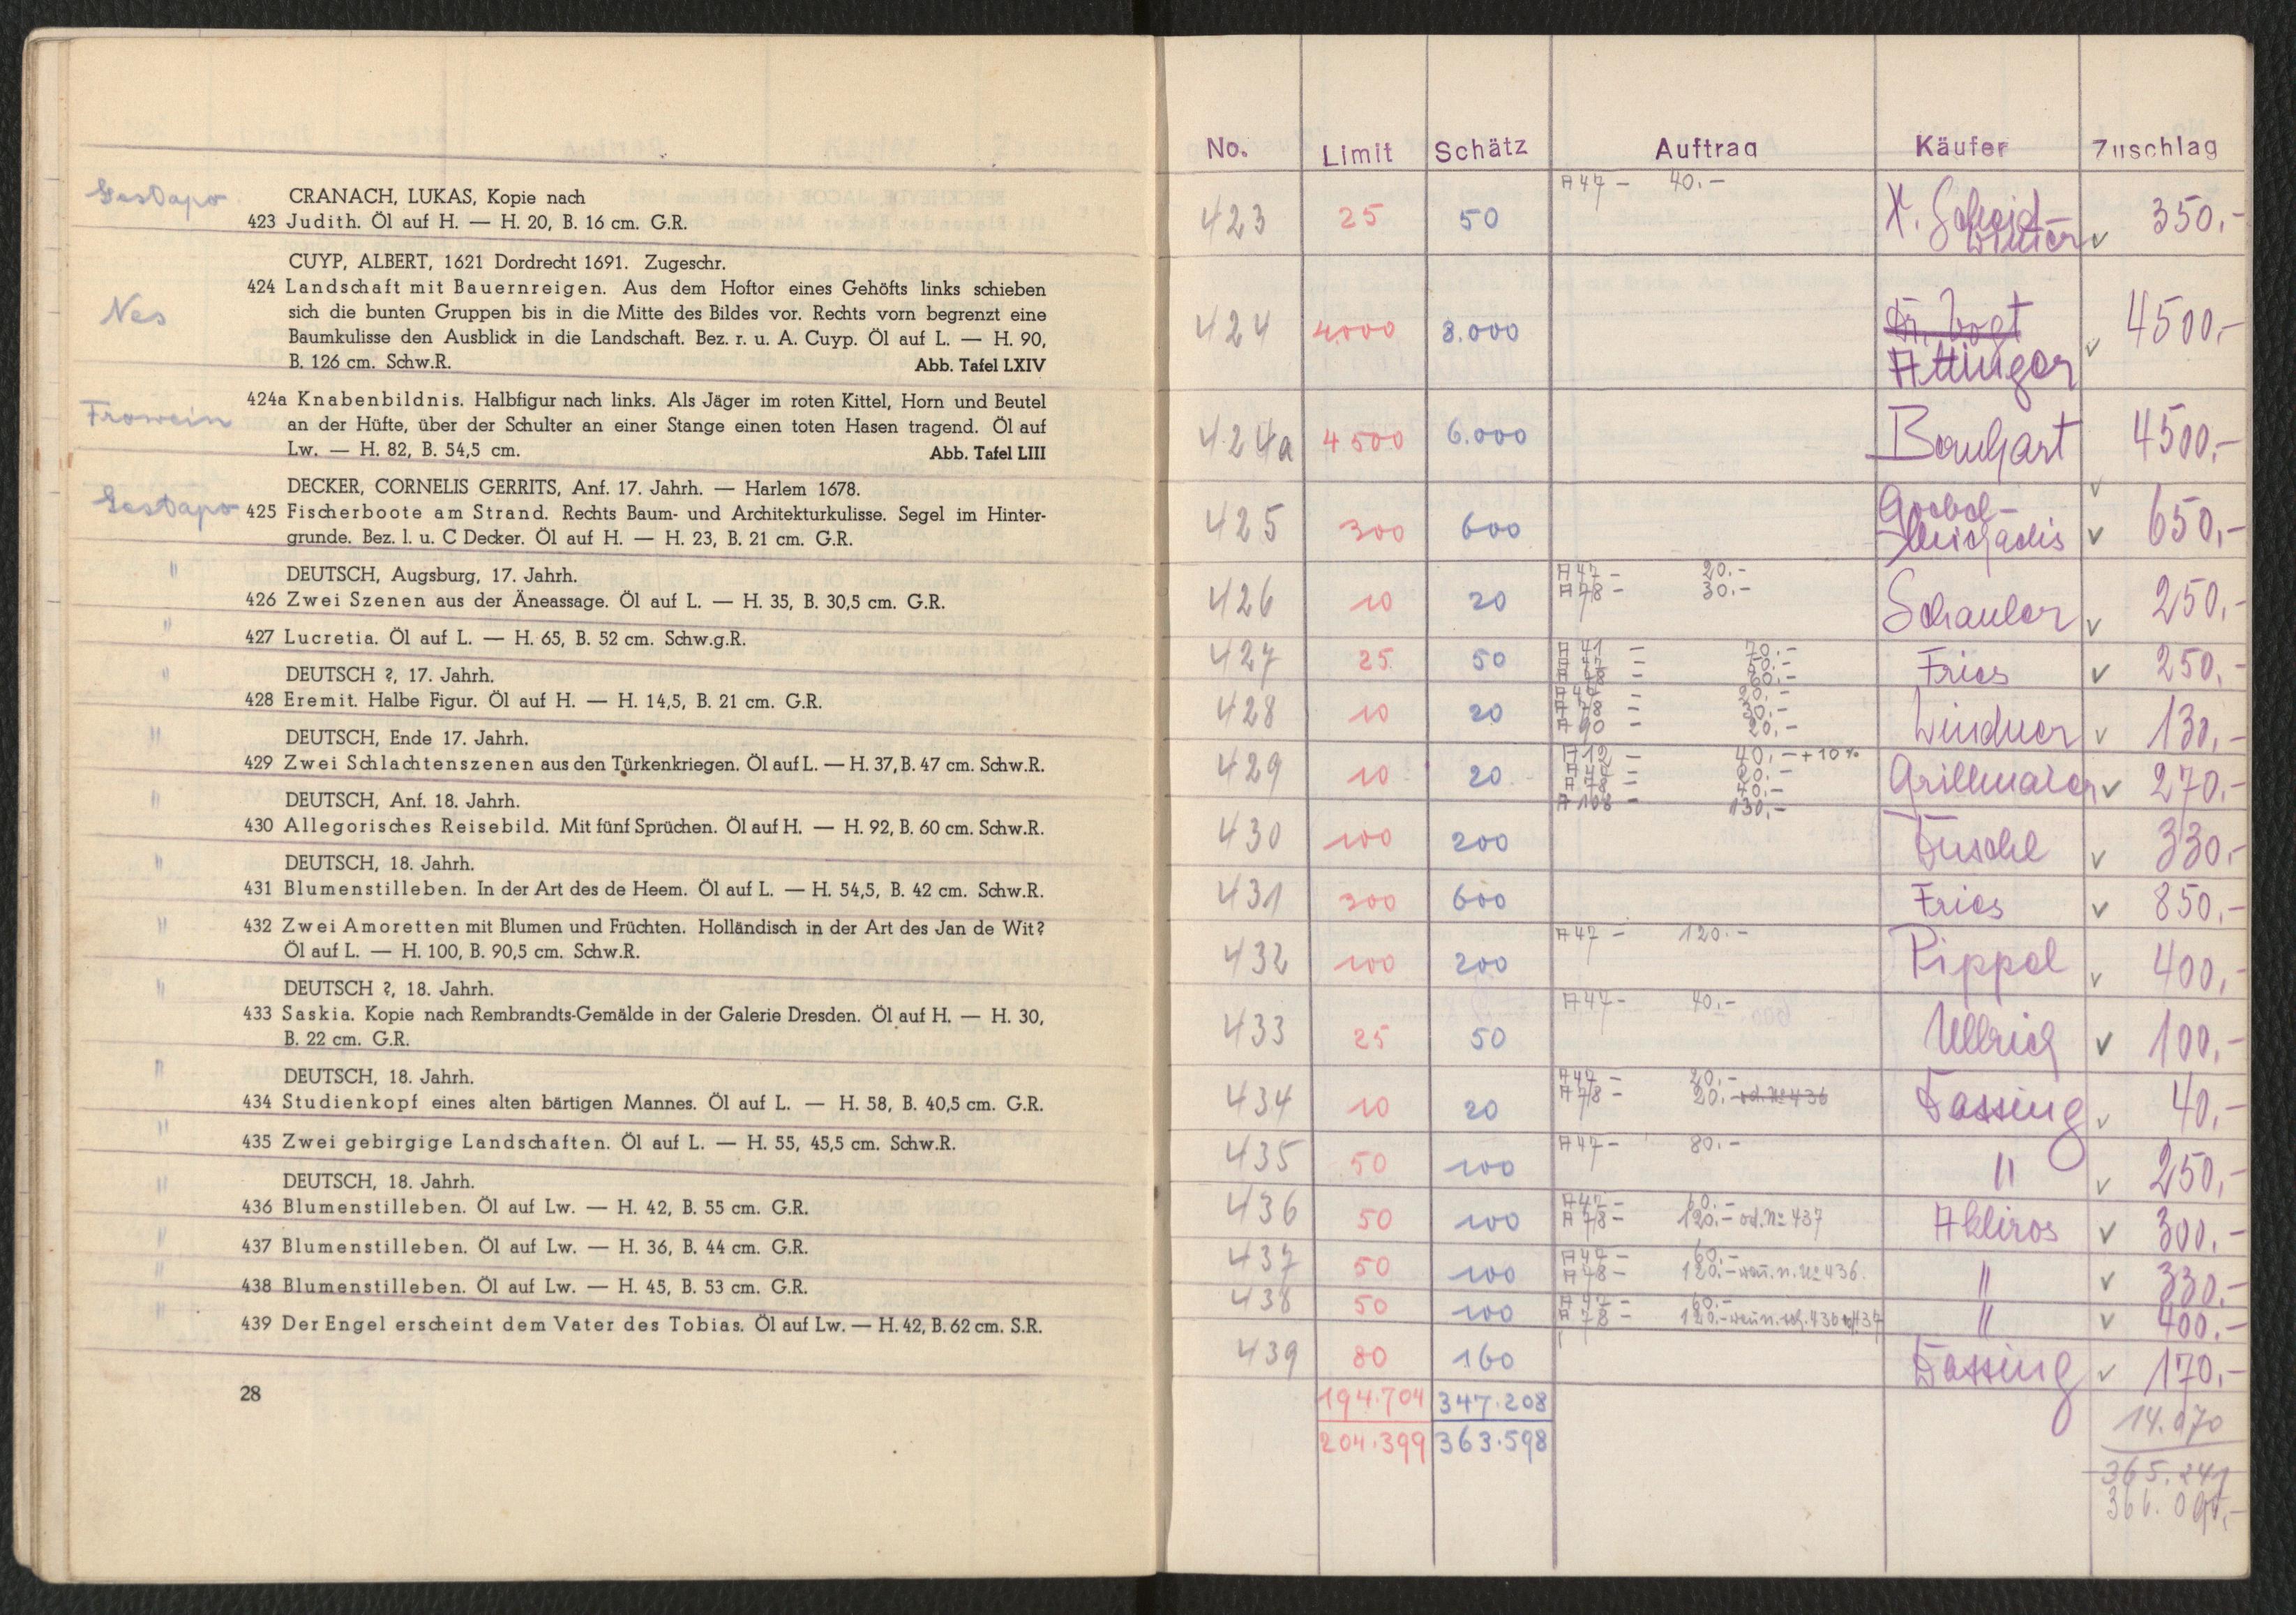 Gestapo
CRANACH, LUKAS, Kopie nach
423 Judith. Öl auf H. — H. 20, B. 16 cm. G.R.
CUYP, ALBERT, 1621 Dordrecht 1691. Zugeschr.
424 Landschaft mit Bauernreigen. Aus dem Hoftor eines Gehöfts links schieben
Nes
sich die bunten Gruppen bis in die Mitte des Bildes vor. Rechts vorn begrenzt eine
Baumkulisse den Ausblick in die Landschaft. Bez. r. u. A. Cuyp. Öl auf L. — H. 90,
B. 126 cm. Schw.R. Abb. Tafel LXIV
424a Knabenbildnis. Halbfigur nach links. Als Jäger im roten Kittel, Horn und Beutel
Frowein
an der Hüfte, über der Schulter an einer Stange einen toten Hasen tragend. Öl auf
Lw. — H. 82, B. 54,5 cm. Abb. Tafel LIII
DECKER, CORNELIS GERRITS, Anf. 17. Jahrh. — Harlem 1678.
Gestapo
425 Fischerboote am Strand. Rechts Baum- und Architekturkulisse. Segel im Hinter-
grunde. Bez. l. u. C Decker. Öl auf H. — H. 23, B. 21 cm. G.R.
" DEUTSCH, Augsburg, 17. Jahrh.
426 Zwei Szenen aus der Äneassage. Öl auf L. — H. 35, B. 30,5 cm. G.R.
" 427 Lucretia. Öl auf L. — H. 65, B. 52 cm. Schw.g.R.
" DEUTSCH ?, 17. Jahrh.
428 Eremit. Halbe Figur. Öl auf H. — H. 14,5, B. 21 cm. G.R.
" DEUTSCH, Ende 17. Jahrh.
429 Zwei Schlachtenszenen aus den Türkenkriegen. Öl auf L. — H. 37, B. 47 cm. Schw.R.
" DEUTSCH, Anf. 18. Jahrh.
430 Allegorisches Reisebild. Mit fünf Sprüchen. Öl auf H. — H. 92, B. 60 cm. Schw.R.
" DEUTSCH, 18. Jahrh.
431 Blumenstilleben. In der Art des de Heem. Öl auf L. — H. 54,5, B. 42 cm. Schw.R.
" 432 Zwei Amoretten mit Blumen und Früchten. Holländisch in der Art des Jan de Wit?
Öl auf L. — H. 100, B. 90,5 cm. Schw.R.
" DEUTSCH ?, 18. Jahrh.
433 Saskia. Kopie nach Rembrandts-Gemälde in der Galerie Dresden. Öl auf H. — H. 30,
B. 22 cm. G.R.
" DEUTSCH, 18. Jahrh.
434 Studienkopf eines alten bärtigen Mannes. Öl auf L. — H. 58, B. 40,5 cm. G.R.
" 435 Zwei gebirgige Landschaften. Öl auf L. — H. 55, 45,5 cm. Schw.R.
" DEUTSCH, 18. Jahrh.
436 Blumenstilleben. Öl auf Lw. — H. 42, B. 55 cm. G.R.
" 437 Blumenstilleben. Öl auf Lw. — H. 36, B. 44 cm. G.R.
" 438 Blumenstilleben. Öl auf Lw. — H. 45, B. 53 cm. G.R.
" 439 Der Engel erscheint dem Vater des Tobias. Öl auf Lw. — H. 42, B. 62 cm. S.R.
28
No. Limit Schätz Auftrag Käufer Zuschlag
A 47 - 40.-
423 25 50 350,-
424 4000 8.000 Dr. Vogt 4500,-
Attinger
424a 4500 6.000 Bernhart 4500,-
425 300 600 650,-
A 47 - 20.-
A 78 - 30.-
426 10 20 250,-
A 41 - 70.-
A 47 - 50.-
A 78 - 60.-
427 25 50 Fries 250,-
A 47 - 20.-
A 78 - 30.-
A 90 - 20,-
428 10 20 Lindner 130,-
A 12 - 40,- + 10%
A 47 - 60.-
A 78 - 70.-
A 108 - 130,-
429 10 20 Grillmaier 270,-
430 100 200 330,-
431 300 600 Fries 850,-
A 47 - 120.-
432 100 200 Pippel 400,-
A 47 - 40.-
433 25 50 Ullrich 100,-
A 47 - 20.-
A 78 - 20.- od. No 436
434 10 20 Dassing 40,-
A 47 - 80.-
435 50 100 " 250,-
A 47 - 60.-
A 78 - 120.- od. No 437
436 50 100 300,-
A 47 - 60.-
A 78 - 120.- wenn n. No 436.
437 50 100 " 330,-
A 47 - 60.-
A 78 - 120.- wenn n. 436 437
438 50 100 " 400,-
439 80 160 Dassing 170,-
194.704 347.208
204.399 363.598
14.070
365.241